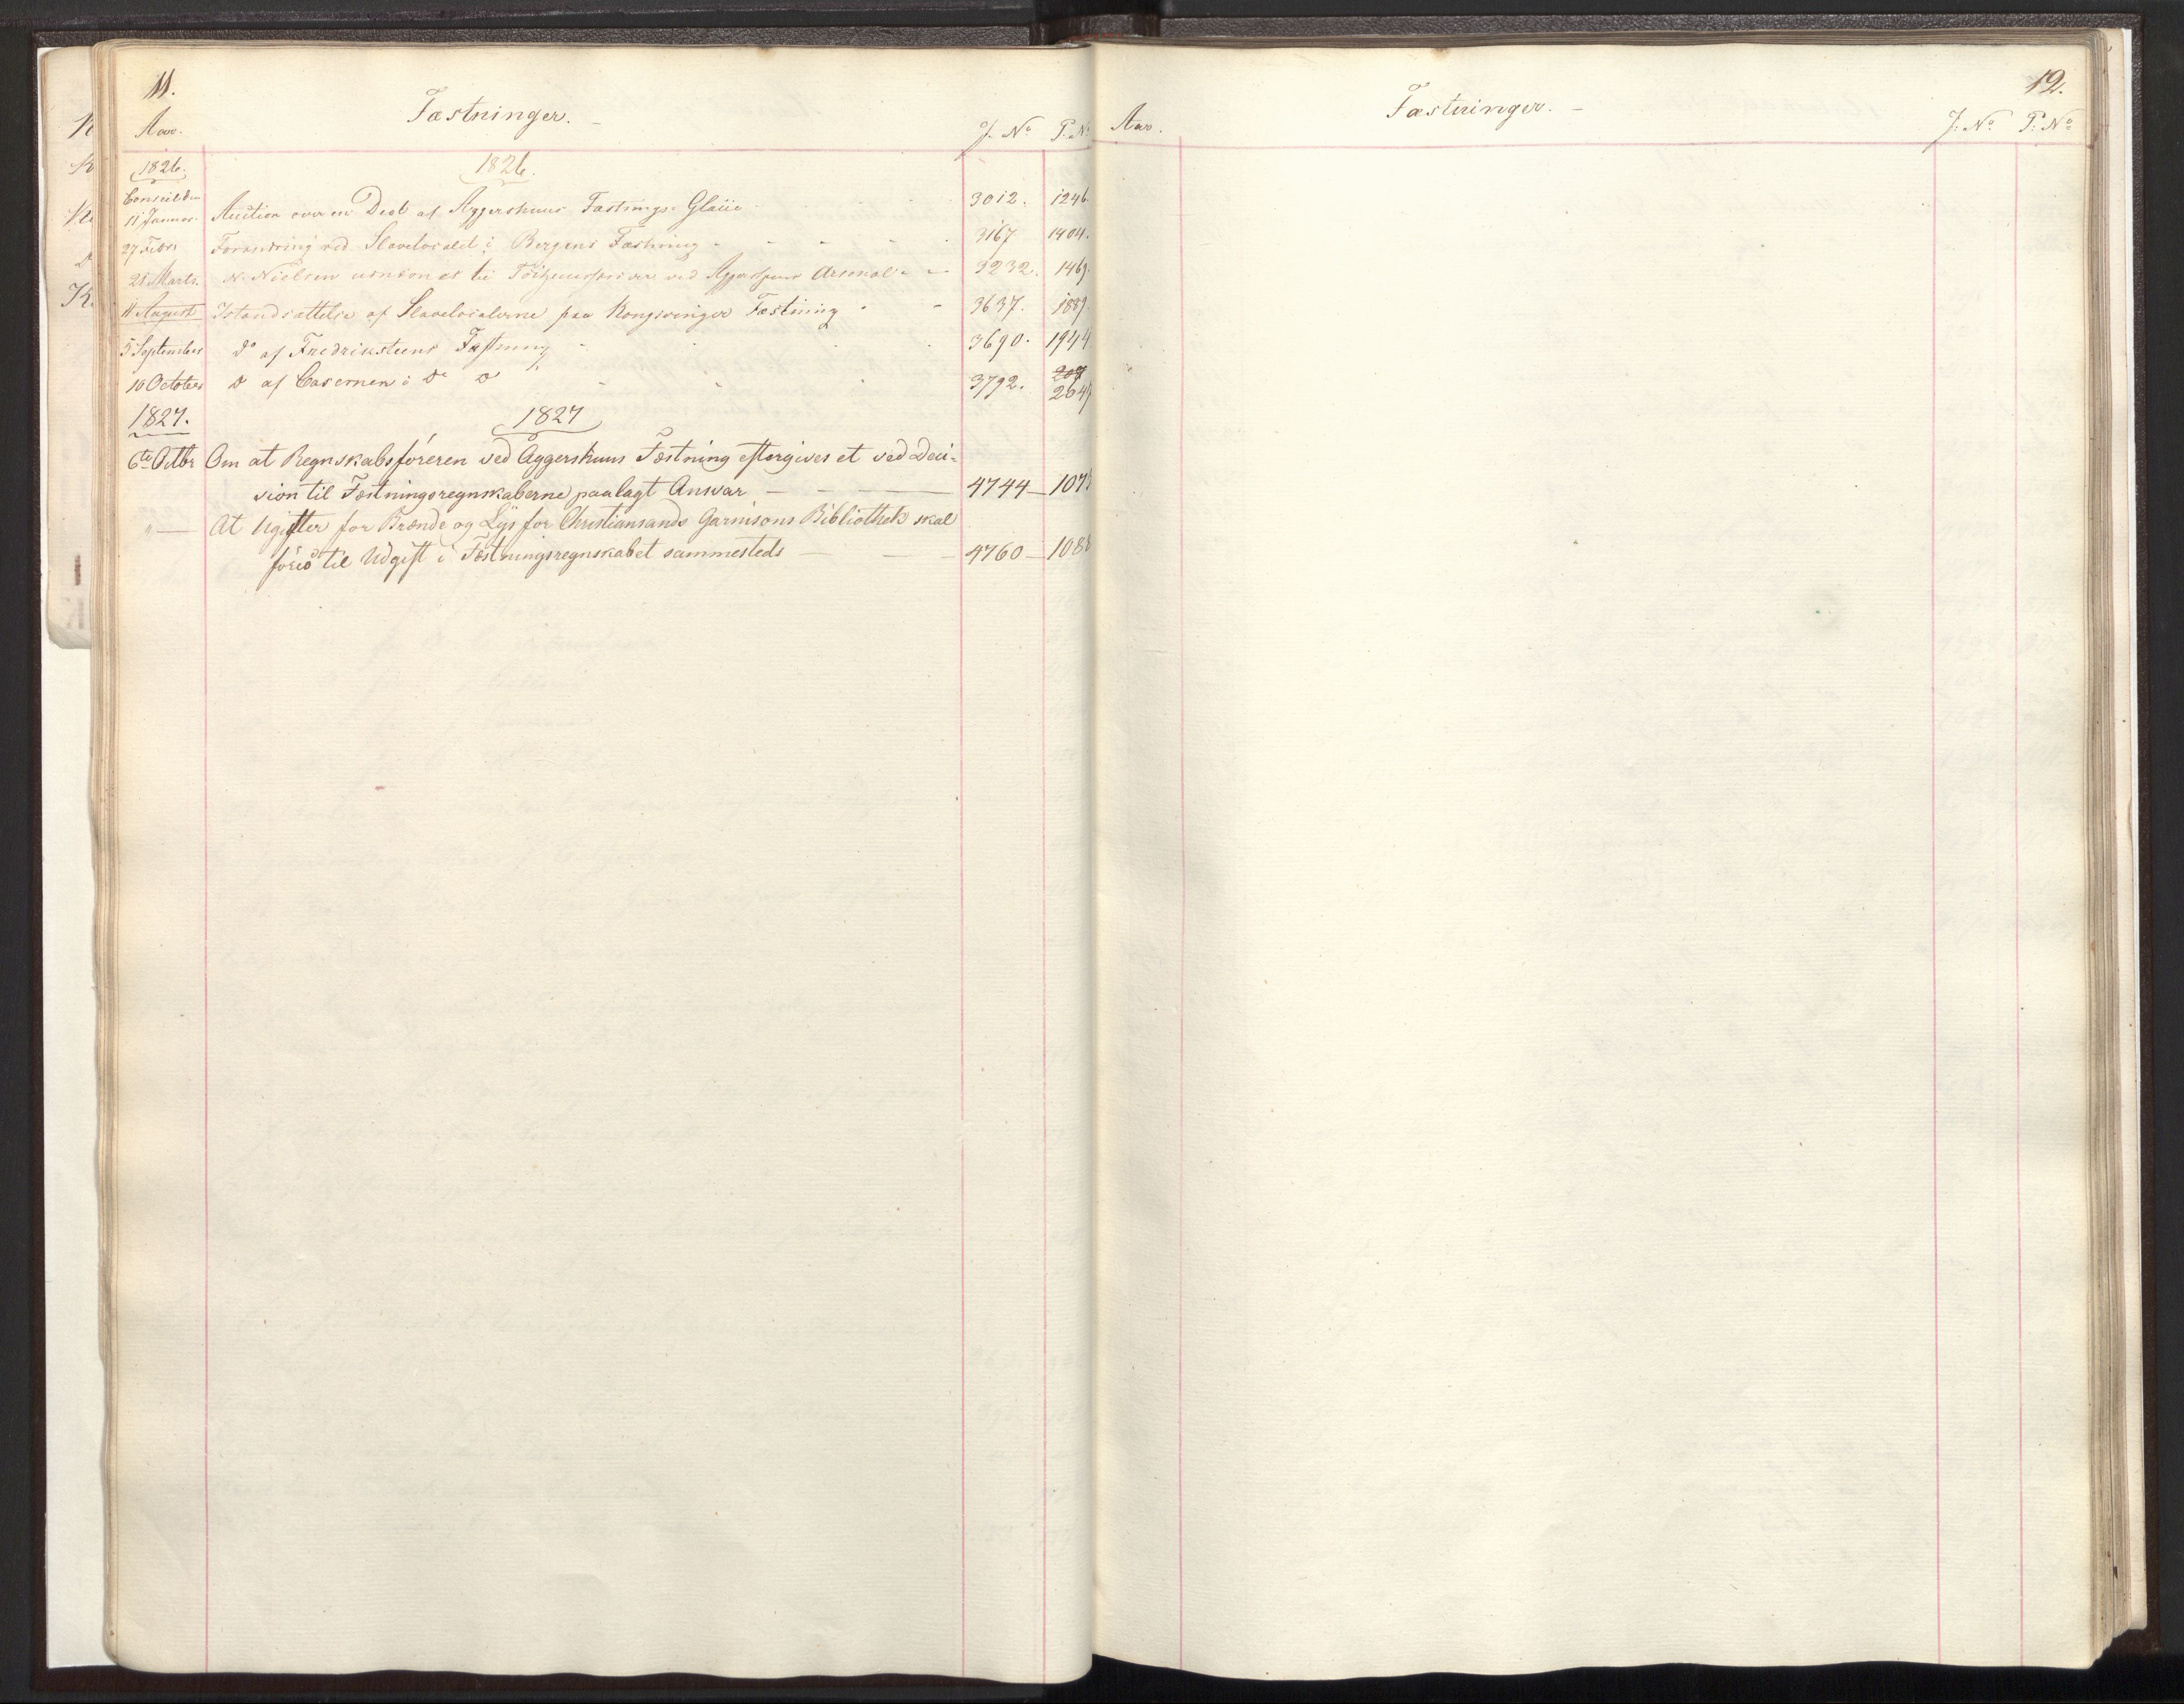 11.
Fæstninger. –
Aar. J. No P. No
1826. 1826.
Conseil den
11 Januar. Auction over en Deel af Aggershuus Fæstnings-Glaiie 3012. 1246.
27 Febr. Forandring ved Slavelocalet i Bergens Fæstning - - - - 3167 1404.
21 Marts. N. Nielsen udnævnes til Töihuusskriver ved Aggershuus Arsenal - - 3232. 1469.
11 August Istandsættelse af Slavelocalerne paa Kongsvinger Fæstning - - 3637. 1889.
5 September do af Fredriksteens Fæstning - - - 3690. 1944
16 October do af Casernen i do do - - 3792.
2647
1827. 1827
6te Octbr Om at Regnskabsføreren ved Aggershuus Fæstning eftergives et ved Deci-
sion til Fæstningsregnskaberne paalagt Ansvar — — — 4744— 107
" — At Ugifter for Brænde og Lys for Christiansands Garnisons Bibliothek skal
føres til Udgift i Fæstningsregnskabet sammesteds — — 4760— 108
12.
Fæstninger. –
Aar. J. No P. No